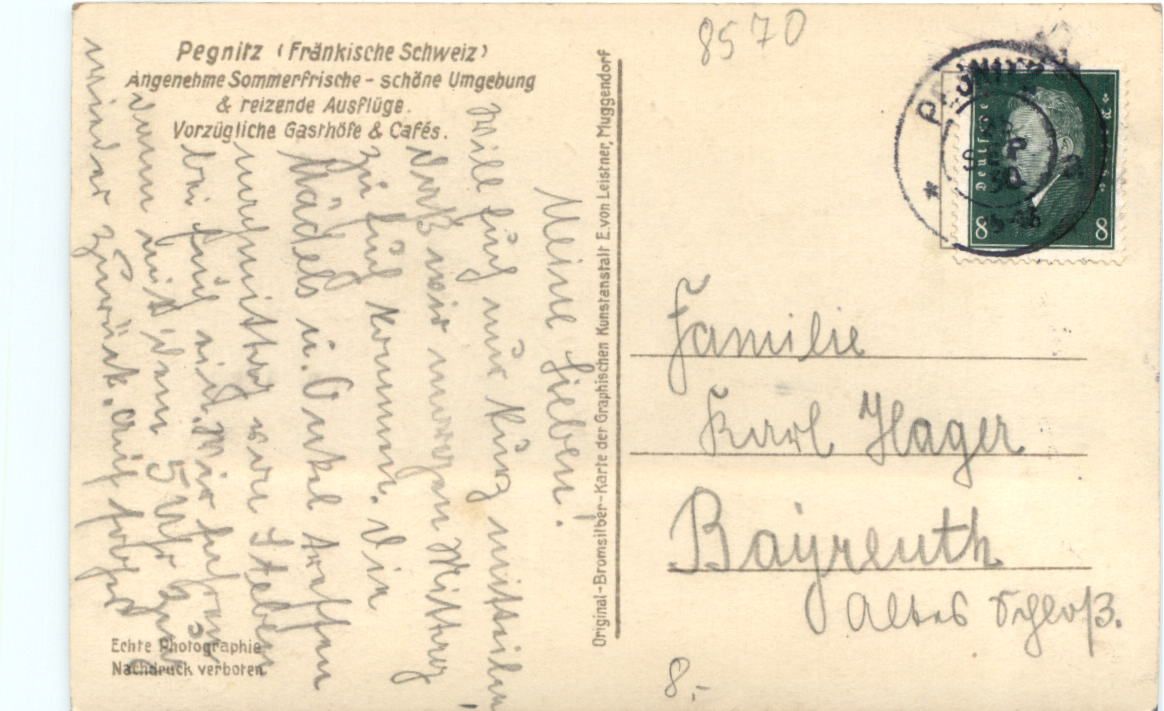 Pegnitz (Fränkische Schweiz)
Angenehme Sommerfrische - schöne Umgebung
& reizende Ausflüge.
Vorzügliche Gasthöfe & Cafés.
Meine Lieben!
Will Euch nur kurz mitteilen
daß wir morgen Mittag
zu Euch kommen. Die
Mädels u. Onkel treffen
nachmittag von Steben
bei Euch ein. Wir fahren
dann mit dem 5 Uhr Zug
wieder zurück. Auf
Echte Photographie
Nachdruck verboten.
Original-Bromsilber-Karte der Graphischen Kunstanstalt E. von Leistner, Muggendorf
8570
PEGNITZ
30
Deutsches Reich
8 8
Familie
Karl Hager
Bayreuth
Altes Schloß.
8.-